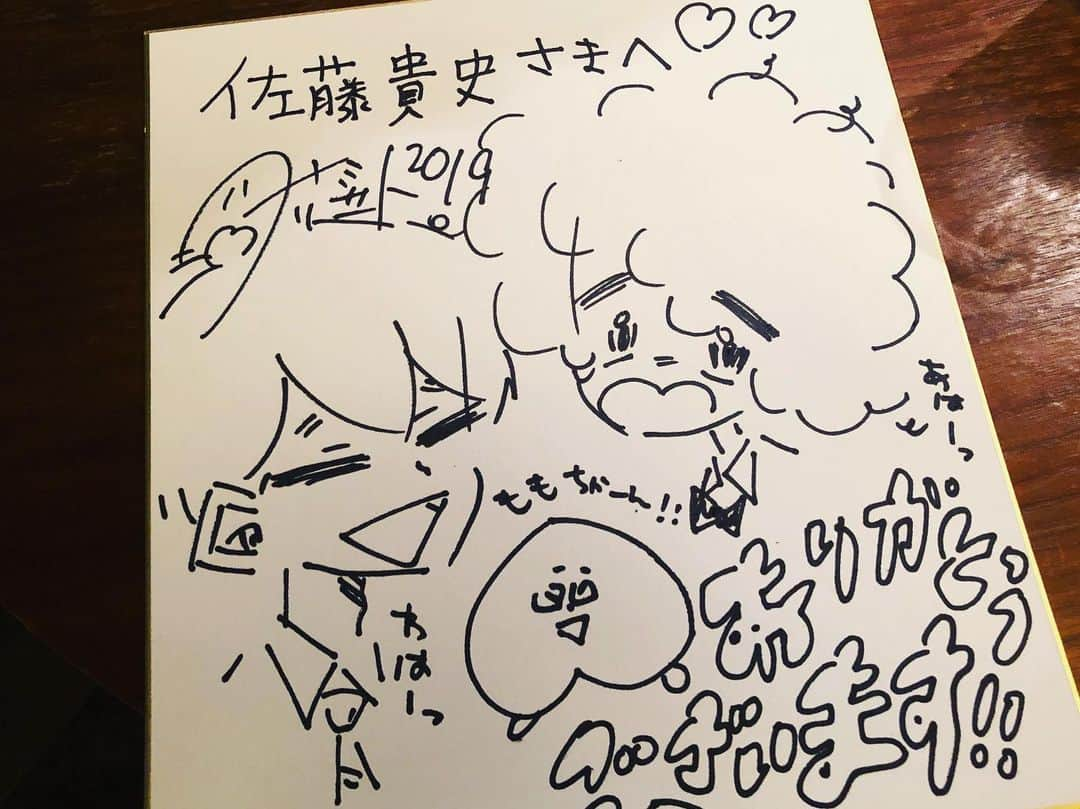 佐藤貴史さまへ♡♡
2019
あはーっ
ももちゃーん!!
わはーっ
ありがとう
ございます!!